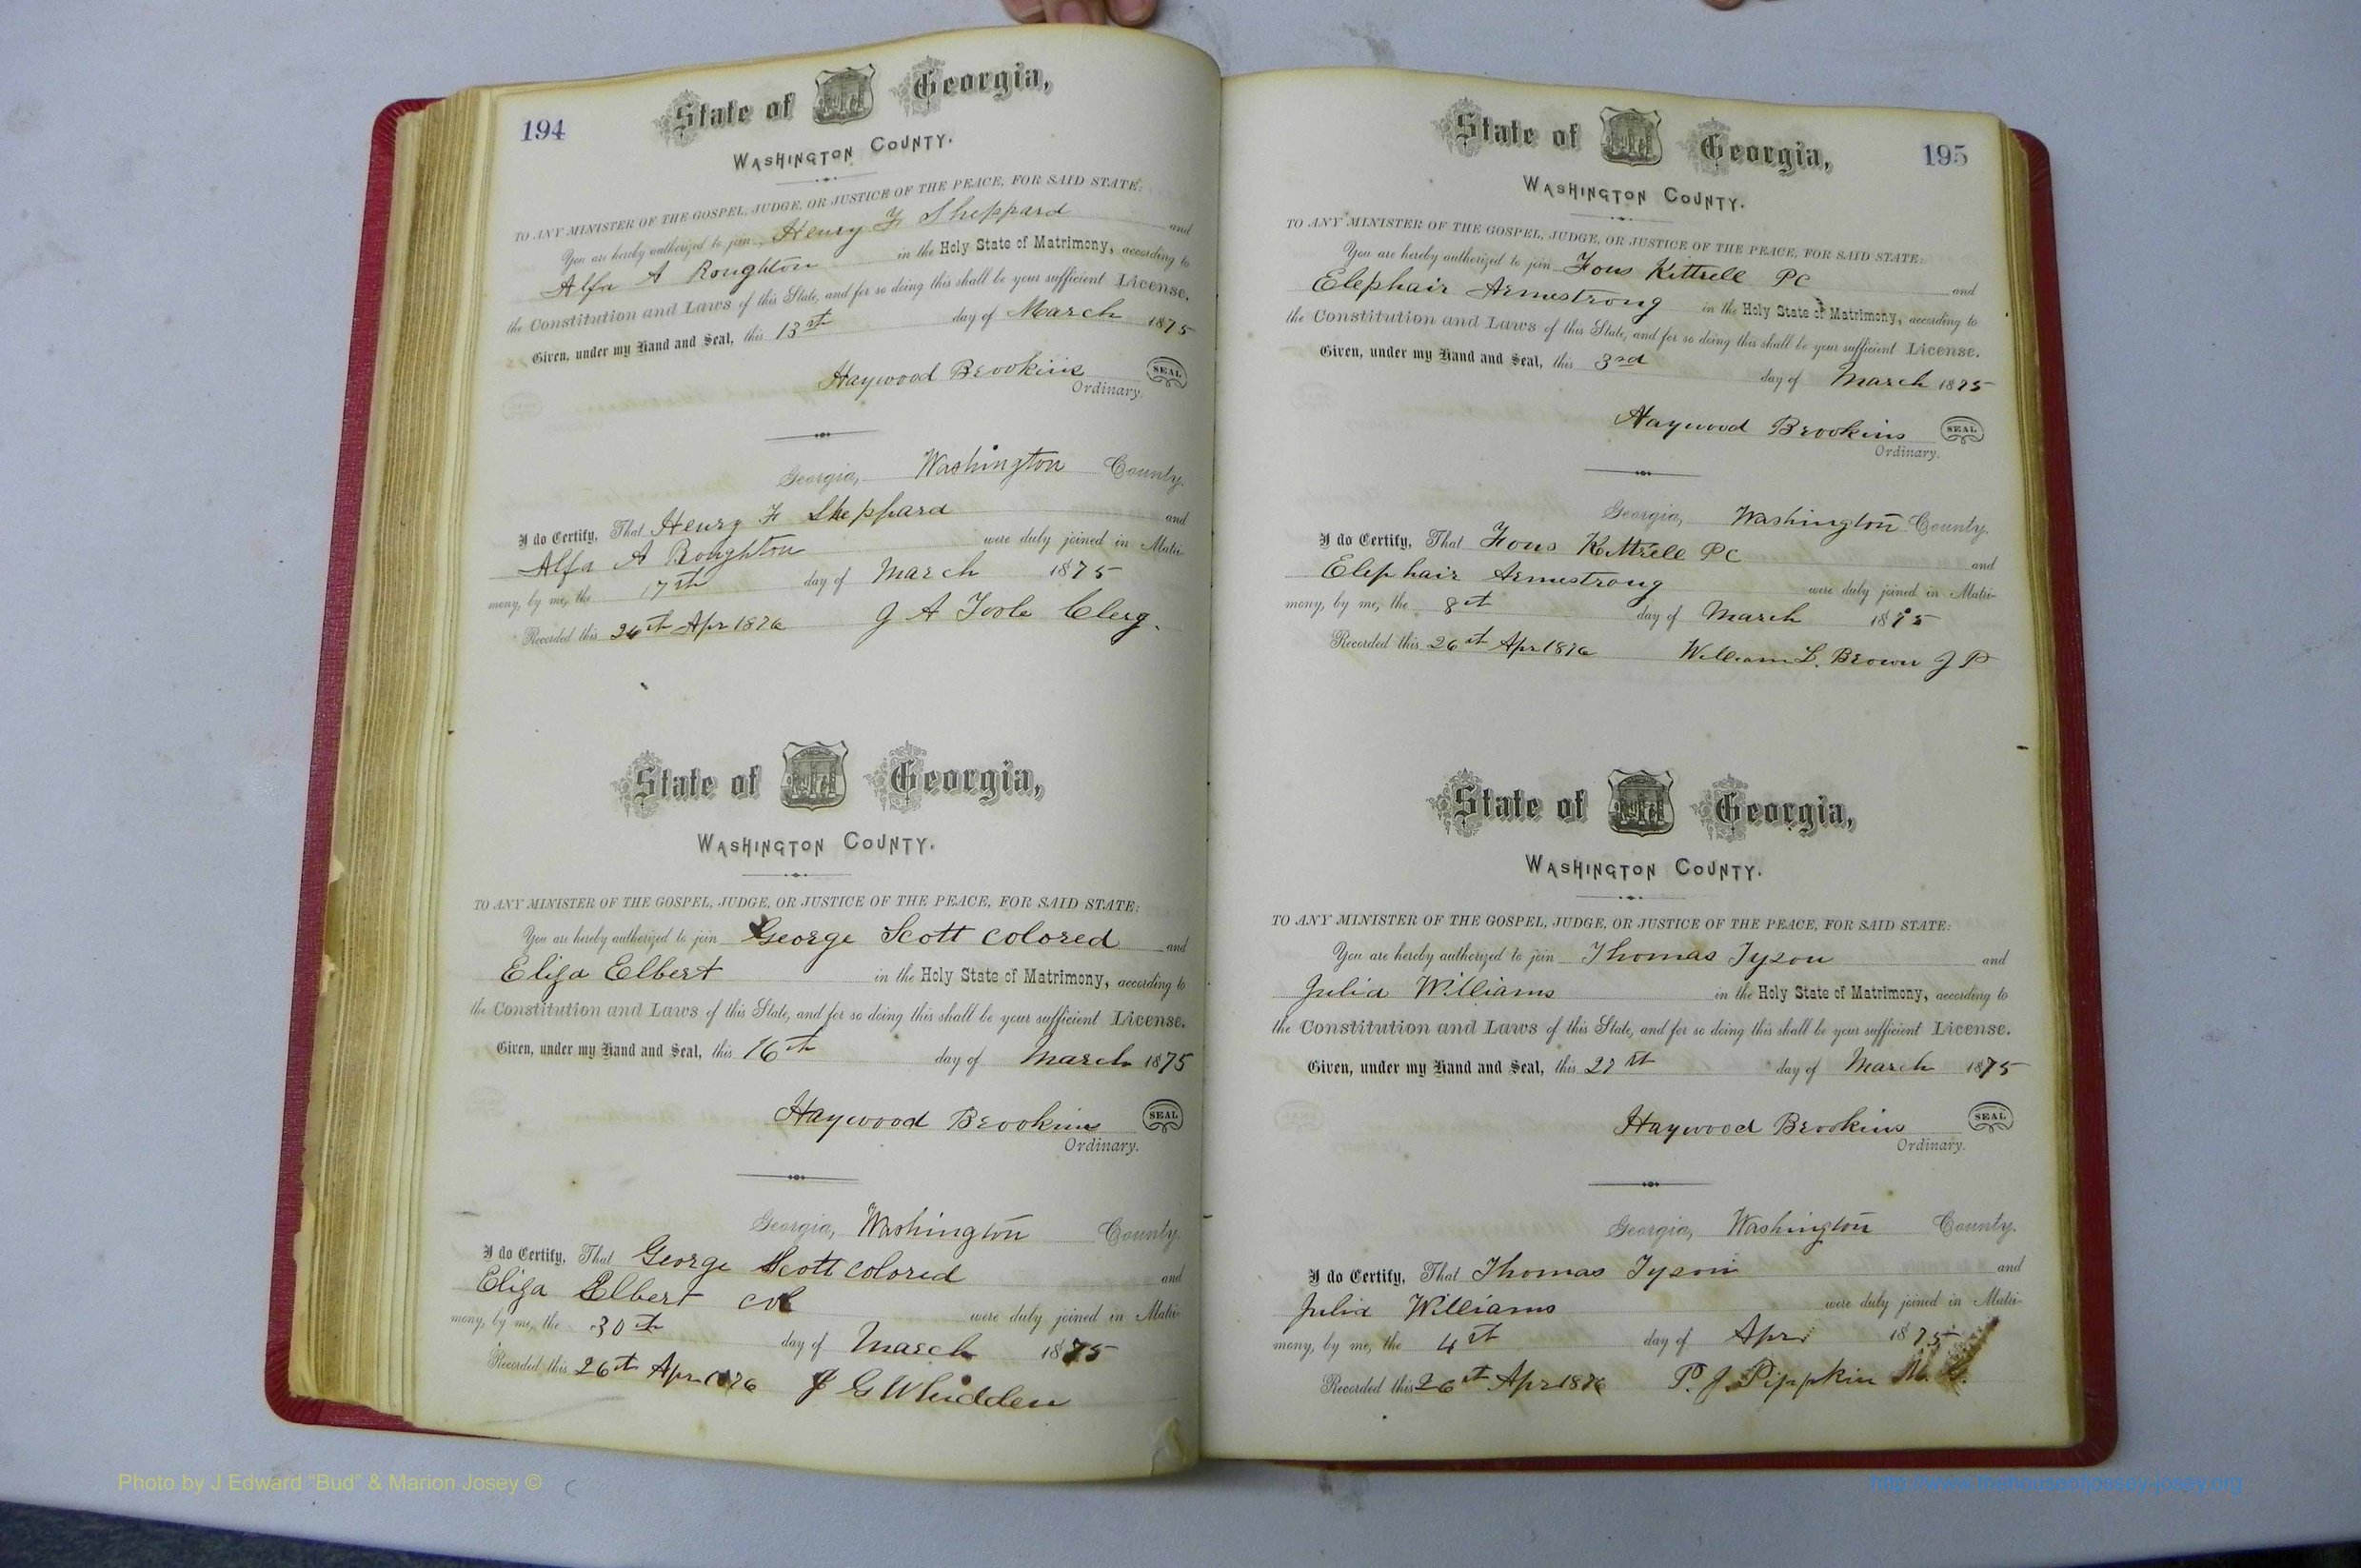 194
State of Georgia,
WASHINGTON COUNTY.
TO ANY MINISTER OF THE GOSPEL, JUDGE, OR JUSTICE OF THE PEACE, FOR SAID STATE:
You are hereby authorized to join Henry F Sheppard and
Alfa A Roughton in the Holy State of Matrimony, according to
the Constitution and Laws of this State, and for so doing this shall be your sufficient License.
Given, under my Hand and Seal, this 13th day of March 1875
Haywood Brookins SEAL
Ordinary.
Georgia, Washington County.
I do Certify, That Henry F Sheppard and
Alfa A Roughton were duly joined in Matri-
mony, by me, the 17th day of March 1875
Recorded this 26th Apr 1876 J A Toole Clerg.
State of Georgia,
WASHINGTON COUNTY.
TO ANY MINISTER OF THE GOSPEL, JUDGE, OR JUSTICE OF THE PEACE, FOR SAID STATE:
You are hereby authorized to join George Scott colored and
Eliza Elbert in the Holy State of Matrimony, according to
the Constitution and Laws of this State, and for so doing this shall be your sufficient License.
Given, under my Hand and Seal, this 16th day of March 1875
Haywood Brookins SEAL
Ordinary.
Georgia, Washington County.
I do Certify, That George Scott colored and
Eliza Elbert col were duly joined in Matri-
mony, by me, the 30th day of March 1875
Recorded this 26th Apr 1876 J G Whidden
195
State of Georgia,
WASHINGTON COUNTY.
TO ANY MINISTER OF THE GOSPEL, JUDGE, OR JUSTICE OF THE PEACE, FOR SAID STATE:
You are hereby authorized to join Fous Kittrell PC and
Elephair Armstrong in the Holy State of Matrimony, according to
the Constitution and Laws of this State, and for so doing this shall be your sufficient License.
Given, under my Hand and Seal, this 3rd day of March 1875
Haywood Brookins SEAL
Ordinary.
Georgia, Washington County.
I do Certify, That Fous Kittrell PC and
Elephair Armstrong were duly joined in Matri-
mony, by me, the 8th day of March 1875
Recorded this 26th Apr 1876 William L. Brown J P
State of Georgia,
WASHINGTON COUNTY.
TO ANY MINISTER OF THE GOSPEL, JUDGE, OR JUSTICE OF THE PEACE, FOR SAID STATE:
You are hereby authorized to join Thomas Tyson and
Julia Williams in the Holy State of Matrimony, according to
the Constitution and Laws of this State, and for so doing this shall be your sufficient License.
Given, under my Hand and Seal, this 27th day of March 1875
Haywood Brookins SEAL
Ordinary.
Georgia, Washington County.
I do Certify, That Thomas Tyson and
Julia Williams were duly joined in Matri-
mony, by me, the 4th day of Apr 1875
Recorded this 26th Apr 1876 P. J. Pippkin M. G.
Photo by J Edward “Bud” & Marion Josey ©
http://www.thehouseofjossey-josey.org